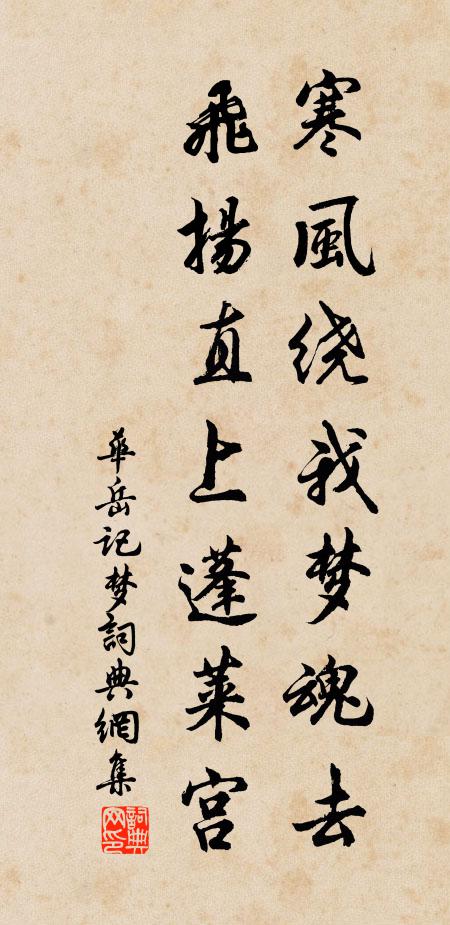 寒風绕我梦魂去
飛揚直上蓬莱宫
華岳记梦詞典網集
詞典網印